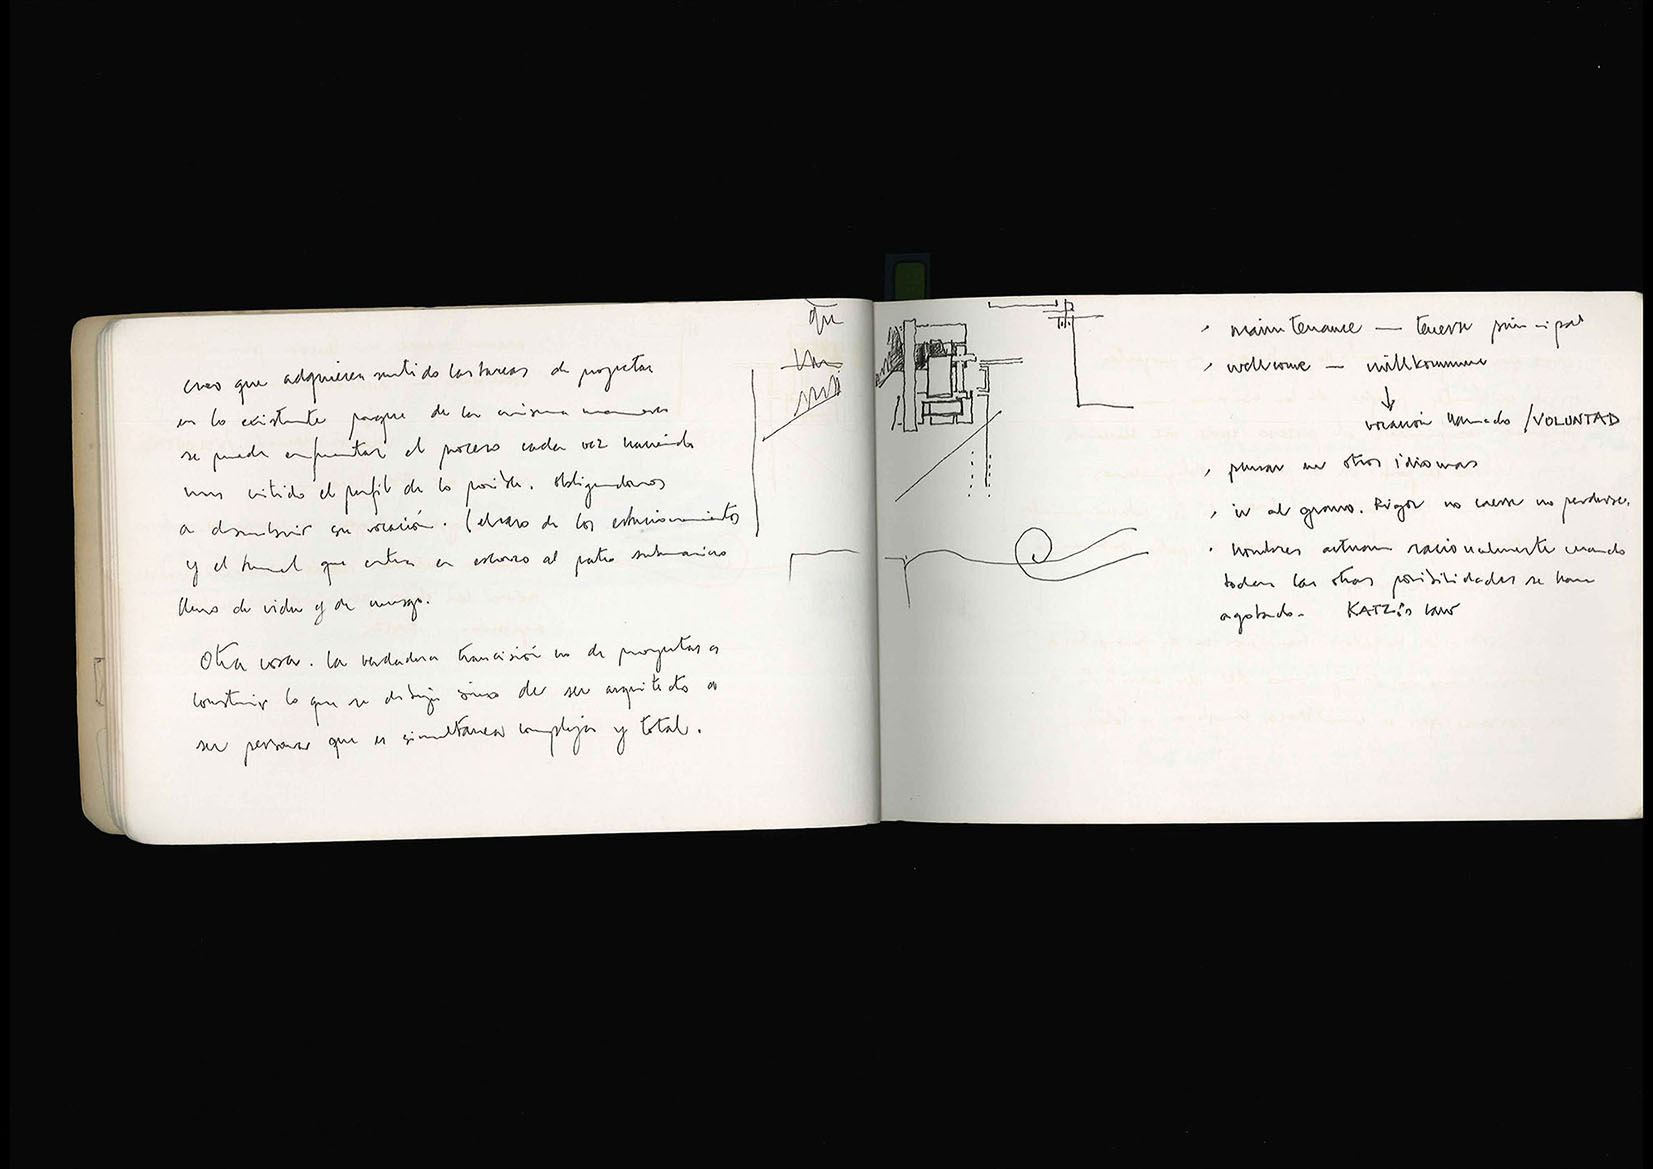 creo que adquieren sentido las tareas de proyectar
en lo existente porque de la misma manera
se puede enfrentar el proceso cada vez haciendo
mas nitido el perfil de lo posible. obligandonos
a descubrir su vocación. (el caso de los estacionamientos
y el tunel que entra en al patio submarino
lleno de vida y de musgo.
Otra cosa. la verdadera transición no de proyectar a
construir lo que se dibuja sino de ser arquitecto a
ser persona que es simultanea compleja y total.
que
maintenance — tenerse principal
wellcome — willkommene
vocación llamado /VOLUNTAD
pensar en otros idiomas
ir al grano. Rigor no caerse no perderse.
hombres actuan racionalmente cuando
todas las otras posibilidades se han
agotado. KATZ's law